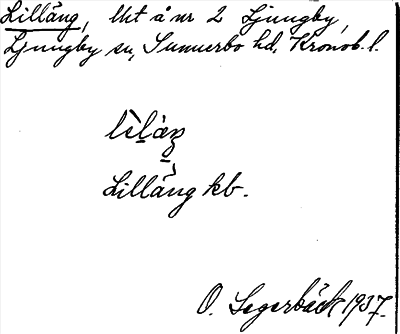 Lilläng, lht å nr 2 Ljungby,
Ljungby sn, Sunnerbo hd, Kronob. l.
Lilläng kb.
O. Segerbäck 1937.